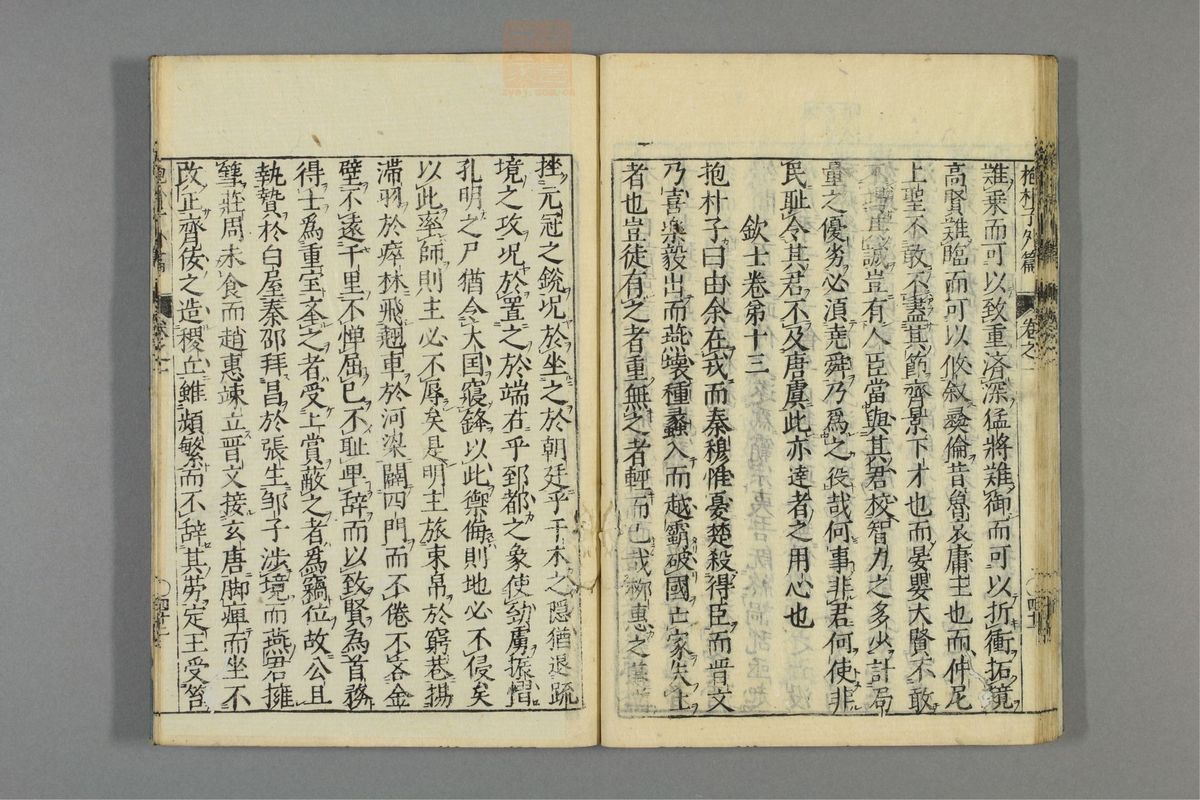 抱朴子外篇　卷之一
難乗而可以致重済深猛將難御而可以折衝拓境
高賢難臨而可以攸叙彝倫昔魯哀庸主也而仲尼
上聖不敢不盡其節齊景下才也而晏嬰大賢不敢
不竭其誠豈有人臣當與其君校智力之多少計局
量之優劣必湏堯舜乃爲之役哉何事非君何使非
民耻令其君不及唐虞此亦達者之用心也
欽士卷第十三
抱朴子曰由余在戎而秦穆惟憂楚殺得臣而晋文
乃喜樂毅出而燕壊種蠡入而越霸破國亡家失士
者也豈徒有之者重無之者輕而已哉桞惠之墓猶
挫元冠之銳况於坐之於朝廷乎干木之隱猶退踈
境之攻况於置之於端右乎郅都之象使勁虜振慴
孔明之尸猶令大国寢鋒以此禦侮則地必不侵矣
以此率師則主必不辱矣是明主旅束帛於窮巷揚
滞羽於瘁林飛翹車於河梁闢四門而不倦不吝金
璧不逺千里不憚屈己不耻卑辞而以致賢為首務
得士爲重宝本之者受上賞蔽之者爲竊位故公且
執贄於白屋秦邵拜昌於張生邹子涉境而燕君擁
篲莊周未食而趙惠竦立晋文接玄唐脚痺而坐不
改正齊侫之造稷丘雖頻繁而不辞其劳定王受笞